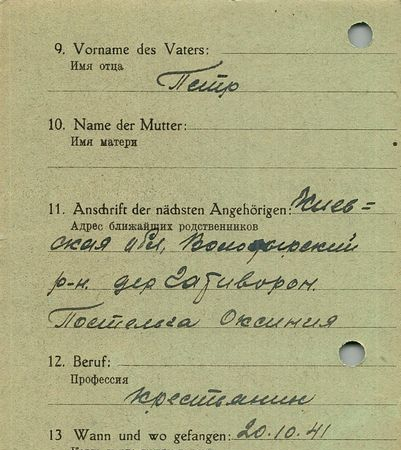 9. Vorname des Vaters:
Имя отца
Петр
10. Name der Mutter:
Имя матери
11. Anschrift der nächsten Angehörigen: Киев=
Адрес ближайших родственников
ская обл,
р-н. дер
Оксиния
12. Beruf:
Профессия
крестьянин
13 Wann und wo gefangen: 20.10.41